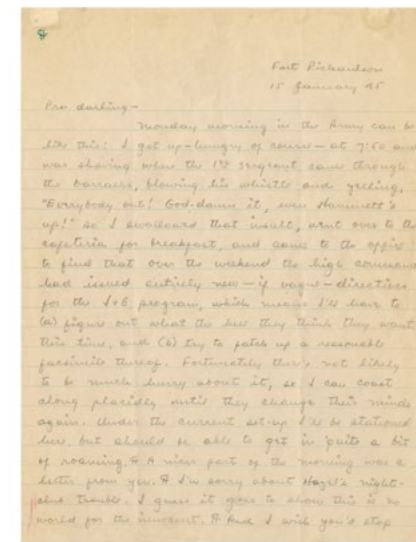 Fort Richardson
15 January 45
Pru darling—
Monday morning in the Army can be
like this: I got up—hungry of course—at 7:50 and
was shaving when the 1st sergeant came through
the barracks, blowing his whistle and yelling,
"Everybody out! God-damn it, even Hammett's
up!" So I swallowed that insult, went over to the
cafeteria for breakfast, and came to the office
to find that over the weekend the high command
had issued entirely new—if vague—directives
for the I&E program, which means I'll have to
(a) figure out what the hell they think they want
this time, and (b) try to patch up a reasonable
facsimile thereof. Fortunately there's not likely
to be much hurry about it, so I can coast
along placidly until they change their minds
again. Under the current set-up I'll be stationed
here, but should be able to get in quite a bit
of roaming. ¶ A nicer part of the morning was a
letter from you. ¶ I'm sorry about Hazel's night-
club trouble. I guess it goes to show this is no
world for the innocent. ¶ And I wish you'd stop